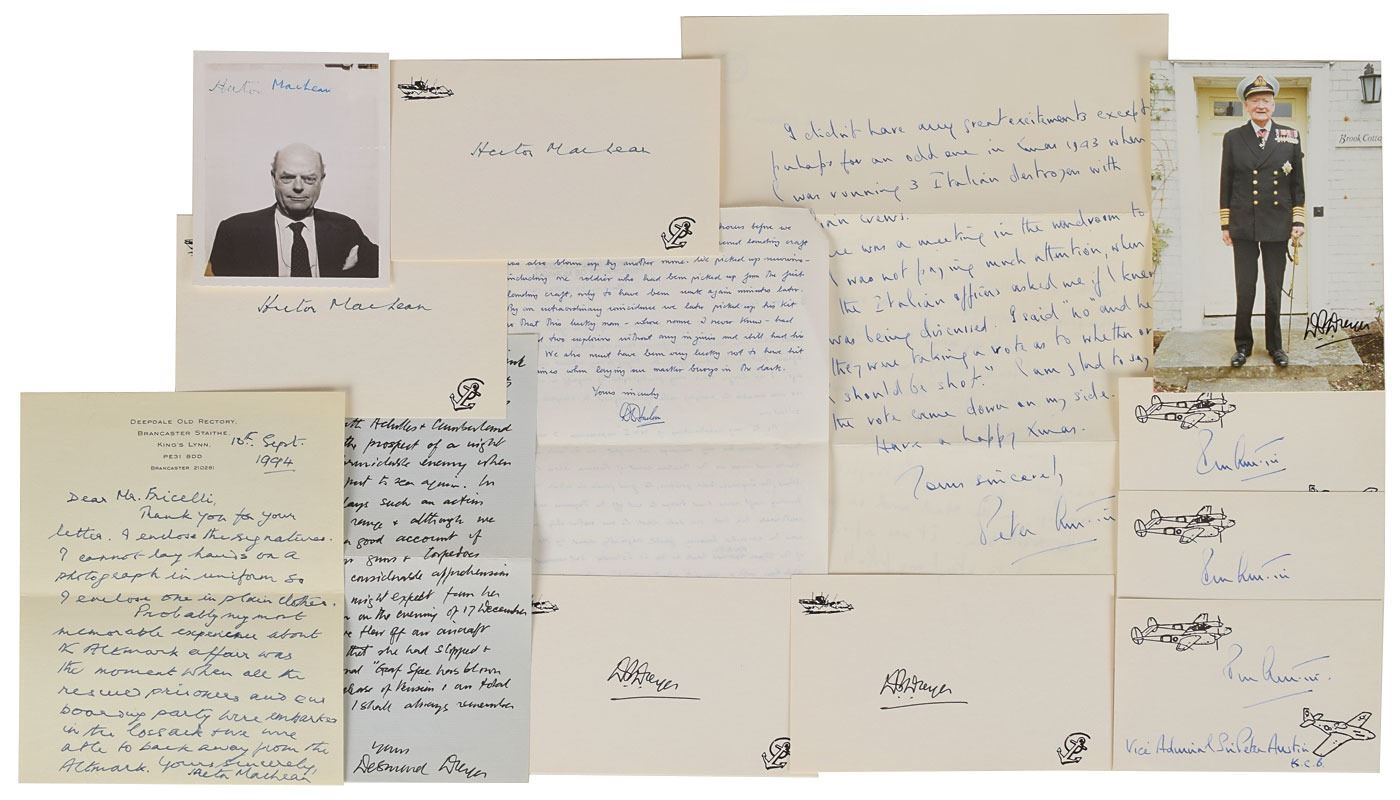 Hector MacLean
Hector MacLean
Hector MacLean
DEEPDALE OLD RECTORY,
BRANCASTER STAITHE,
KING'S LYNN.
PE31 8DD
BRANCASTER 210281
10th Sept.
1994
Dear Mr. Fricelli,
Thank you for your
letter. I enclose the signatures.
I cannot lay hands on a
photograph in uniform so
I enclose one in plain clothes.
Probably my most
memorable experience about
the Altmark affair was
the moment when all the
rescued prisoners and our
boarding party were embarked
in the Cossack & we were
able to back away from the
Altmark. Yours sincerely,
Hector MacLean
Achilles & Cumberland
the prospect of a night
enemy when
put to sea again. In
days such an action
range & although we
good account of
guns & torpedoes
considerable apprehension
might expect from her
on the evening of 17 December
flew off an aircraft
that she had slipped &
"Graf Spee has blown
I shall always remember
Yours
Desmond Dreyer
hours before we
landing craft
was also blown up by another mine. We picked up survivors -
including one soldier who had been picked up from the first
landing craft, only to have been sunk again minutes later.
By an extraordinary coincidence we later picked up his kit
that this lucky man - whose name I never knew - had
two explosions without any injuries and still had his
We also must have been very lucky not to have hit
mines when laying our marker buoys in the dark.
Yours sincerely
I didn't have any great excitements except
perhaps for an odd one in Xmas 1943 when
I was running 3 Italian destroyers with
crews.
was a meeting in the wardroom to
I was not paying much attention, when
the Italian officers asked me if I knew
was being discussed. I said "no" and he
they were taking a vote as to whether or
I should be shot." I am glad to say
the vote came down on my side.
Have a happy Xmas.
Yours sincerely
Peter Austin
Brook Cotta
D.P. Dreyer
D.P. Dreyer
D.P. Dreyer
Peter Austin
Peter Austin
Peter Austin
Vice Admiral Sir Peter Austin
K.C.B.